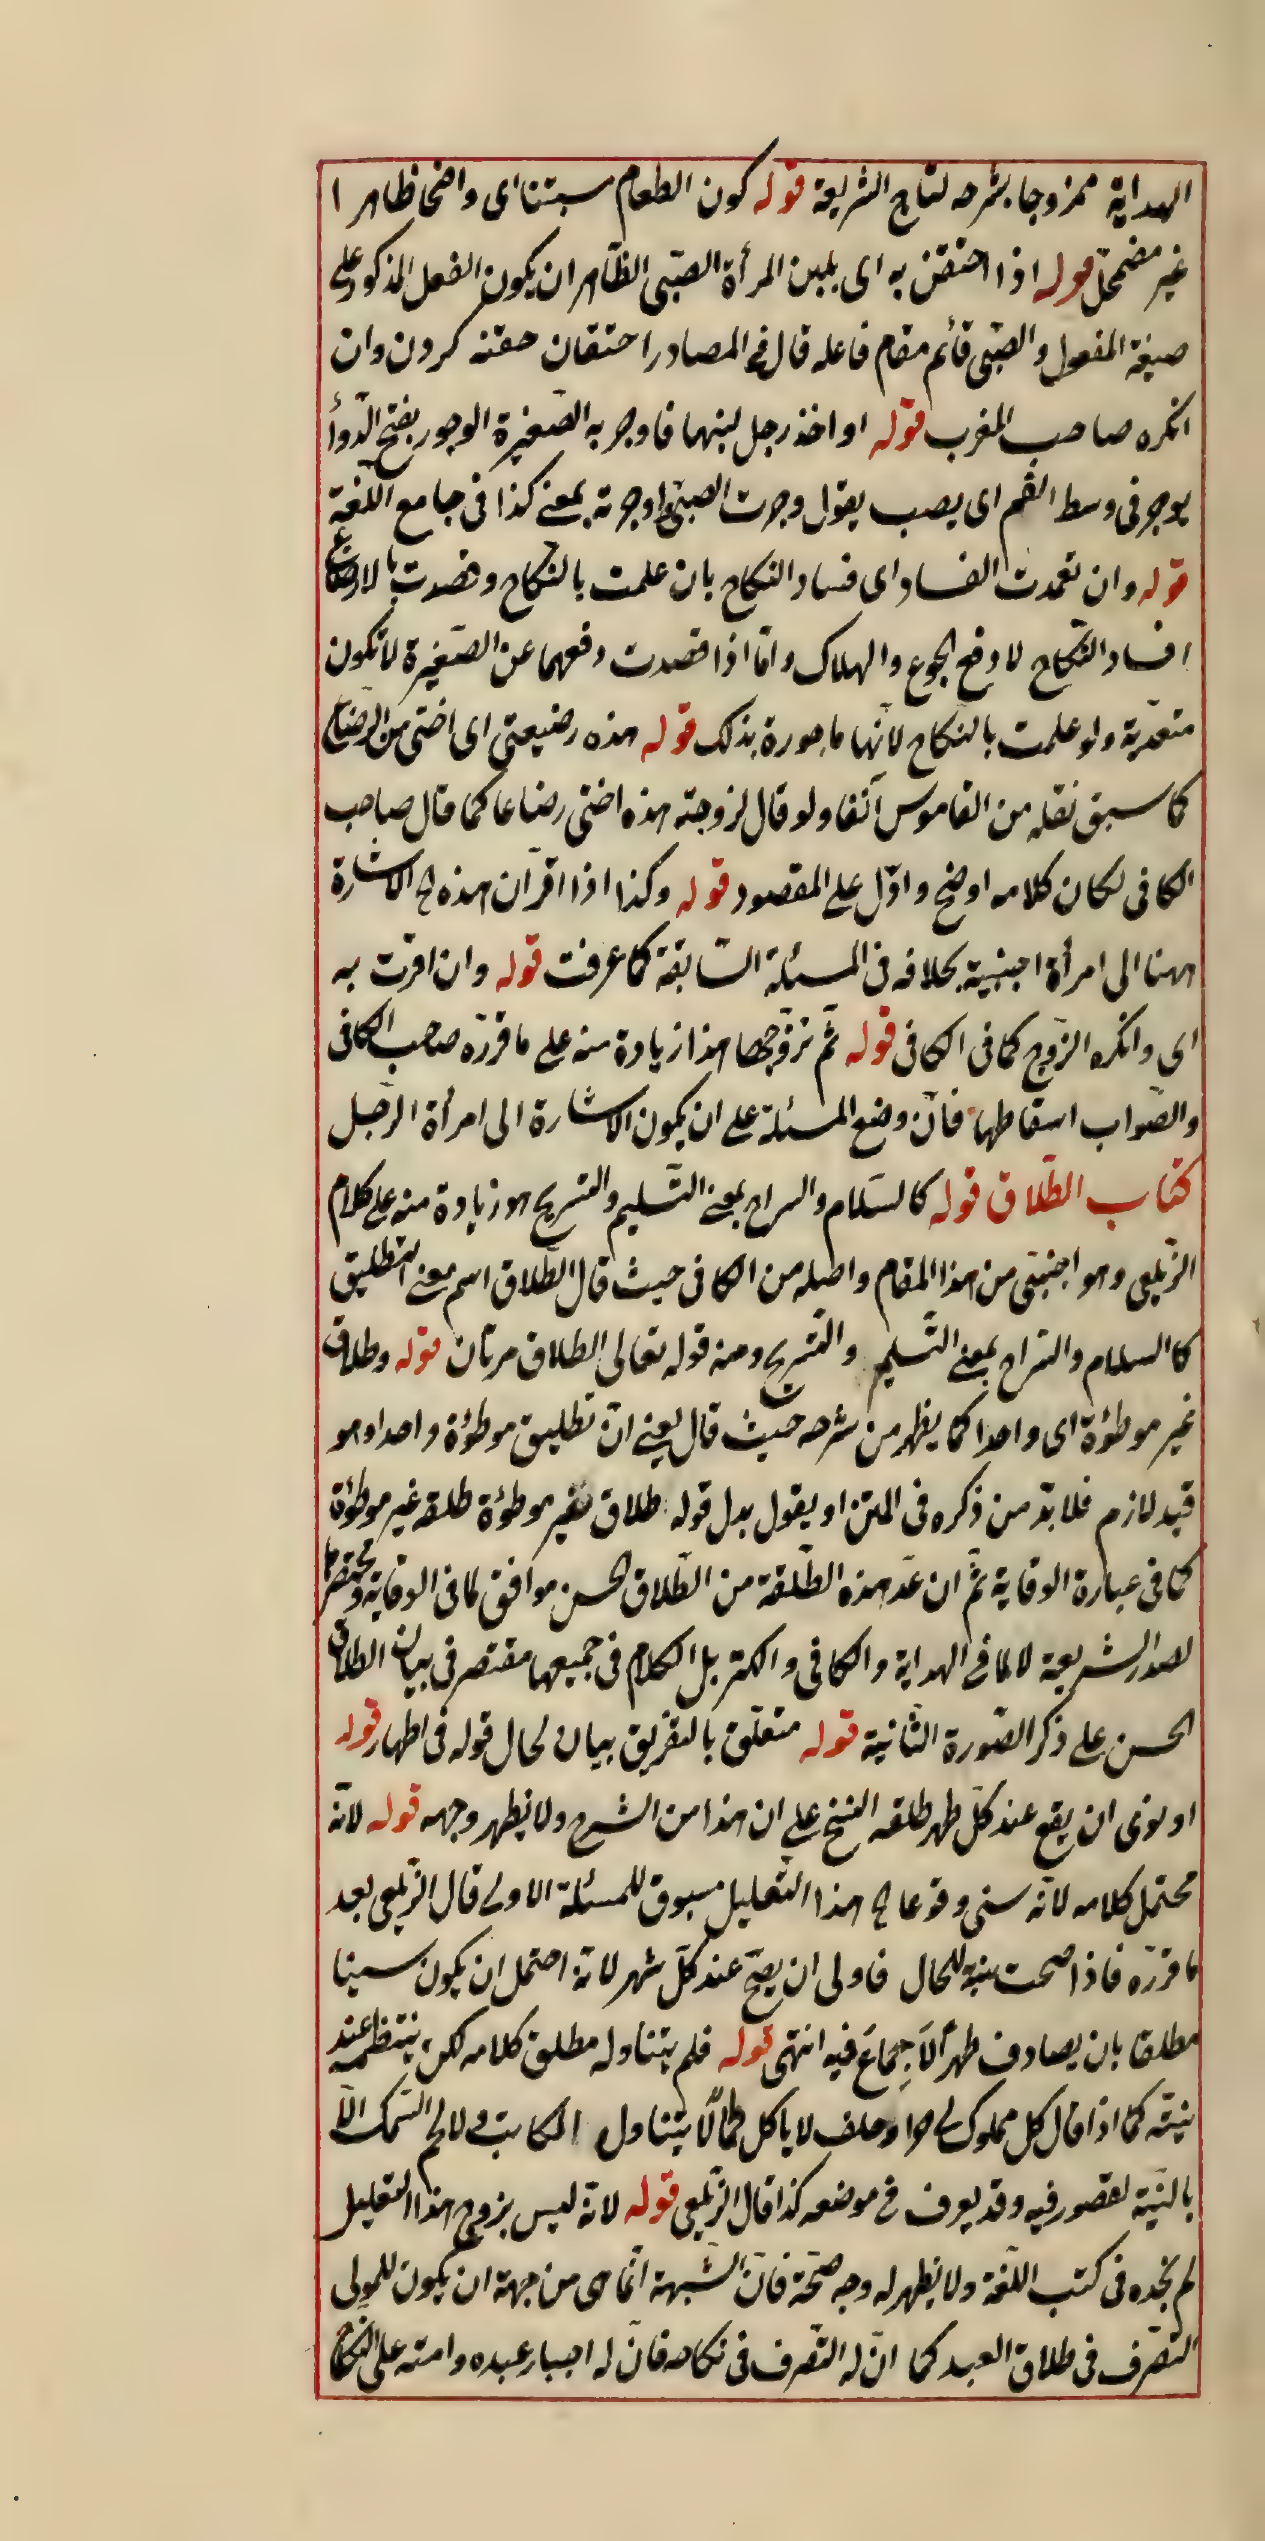 الهداية ممزوجا بشرحه لتاج الشريعة قوله كون الطعام مستبنا اى واضحا ظاهرا ا
غير مضمحل قوله اذا احتقن به اى بلبن المرأة الصّبى الظّاهر ان يكون الفعل المذكور على
صيغة المفعول والصّبى قائم مقام فاعله قال فى المصادر احتقان حقنه كردن وان
انكره صاحب المغرب قوله او اخذ رجل لبنهما فاوجر به الصّغيرة الوجور بفتح الدّوأ
يوجر فى وسط الفم اى يصب يقول وجرت الصبىّ واوجرته بمعنى كذا فى جامع اللّغة
قوله وان تعمدت الفساد اى فساد النكاح بان علمت بالنّكاح وقصدت بالارضاع
افساد النّكاح لا دفع الجوع والهلاك وامّا اذا قصدت دفعهما عن الصّغيرة لا تكون
متعدّية ولو علمت بالنكاح لانّها مامورة بذلك قوله هذه رضيعتى اى اختى من الرضاع
كما سبق نقله من القاموس آنفا ولو قال لزوجته هذه اختى رضاعا كما قال صاحب
الكافى لكان كلامه اوضح وادّل على المقصود قوله وكذا اذا اقرّ ان هذه الخ الاشارة
ههنا الى امرأة اجنبية بخلافه فى المسئلة السّابقة كما عرفت قوله وان اقرّت به
اى وانكره الزّوج كما فى الكافى قوله ثمّ تزوّجها هذا زيادة منه على ما قرّره صاحب الكافى
والصّواب اسقاطها فانّ وضع المسئلة على ان يكون الاشارة الى امرأة الرّجل
كتاب الطّلاق قوله كالسّلام والسراح بمعنى التّسليم والتسريح هو زيادة منه على كلام
الزّيلعى وهو اجنبىّ من هذا المقام واصله من الكافى حيث قال الطّلاق اسم بمعنى التّطليق
كالسلام والسّراح بمعنى التّسليم والتّسريح ومنه قوله تعالى الطلاق مرتان قوله وطلاق
غير موطؤة اى واحدا كما يظهر من شرحه حيث قال يعنى انّ تطليق موطؤة واحدا وهو
قيد لازم فلا بدّ من ذكره فى المتن او يقول بدل قوله طلاق غير موطؤة طلقه غير موطؤة
كما فى عبارة الوقاية ثمّ ان عدّ هذه الطّلقة من الطّلاق الحسن موافق لما فى الوقاية ومختصرها
لصدر الشريعة لا لما فى الهداية والكافى والكنز بل الكلام فى جميعها مقتصر فى بيان الطلاق
الحسن على ذكر الصّورة الثّانية قوله متعلّق بالتفريق بيان لحال قوله فى اطهار قوله
او نوى ان يقع عند كلّ طهر طلقه النسخ على ان هذا من الشرح ولا يظهر وجهه قوله لانّه
محتمل كلامه لانّه سنى وقوعا الخ هذا التّعليل مسبوق للمسئلة الاولى قال الزّيلعى بعد
ما قرّره فاذا صحت نيته للحال فاولى ان يصحّ عند كلّ شهر لانّه احتمل ان يكون سنيّا
مطلقا بان يصادف طهرًا لا جماع فيه انتهى قوله فلم يتناوله مطلق كلامه لكن ينتظمه عند
نيّته كما اذا قال كل مملوك لى حر او حلف لا ياكل لحما لا يتناول المكاتب ولا لحم السّمك الّا
بالنّية لقصور فيه وقد يعرف فى موضعه كذا قال الزّيلعى قوله لانّه ليس بزوج هذا التعليل
لم نجده فى كتب اللّغة ولا يظهر له وجه صّحة فانّ الشّبهة انّما هى من جهة ان يكون للمولى
التصّرف فى طلاق العبد كما انّ له التّصرف فى نكاحه فانّ له اجبار عبده وامته على النكاح